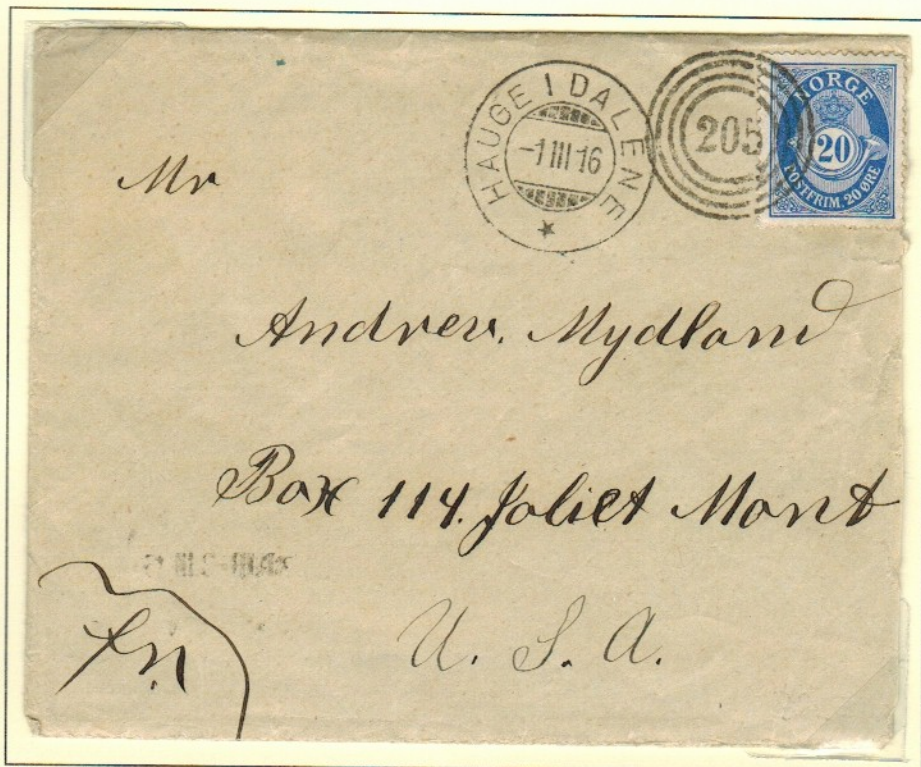 HAUGE I DALENE
-1 III 16
205
NORGE
20
POSTFRIM. 20 ØRE
Mr
Andrew. Mydland
Box 114. Joliet Mont
U. S. A.